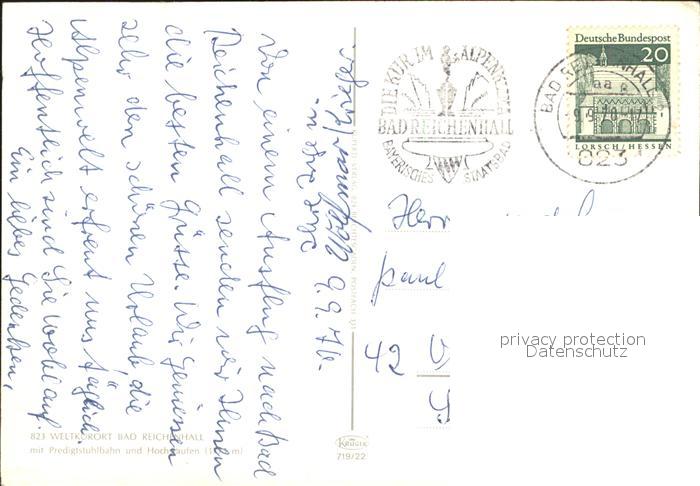 Von einem Ausflug nach Bad
Reichenhall senden wir Ihnen
die besten Grüsse. Wir geniessen
sehr den schönen Urlaub die
Alpenwelt erfreut uns täglich.
Hoffentlich sind Sie wohlauf.
Ein liebes Gedenken,
9.9.
823 WELTKURORT BAD REICHENHALL
mit Predigtstuhlbahn und Hochstaufen
KRÜGER
719/22
DIE KUR IM ALPENKLIMA
BAD REICHENHALL
BAYERISCHES STAATSBAD
Deutsche Bundespost
20
LORSCH/HESSEN
BAD REICHENHALL
aa
823
Herr
Paul
42
privacy protection
Datenschutz